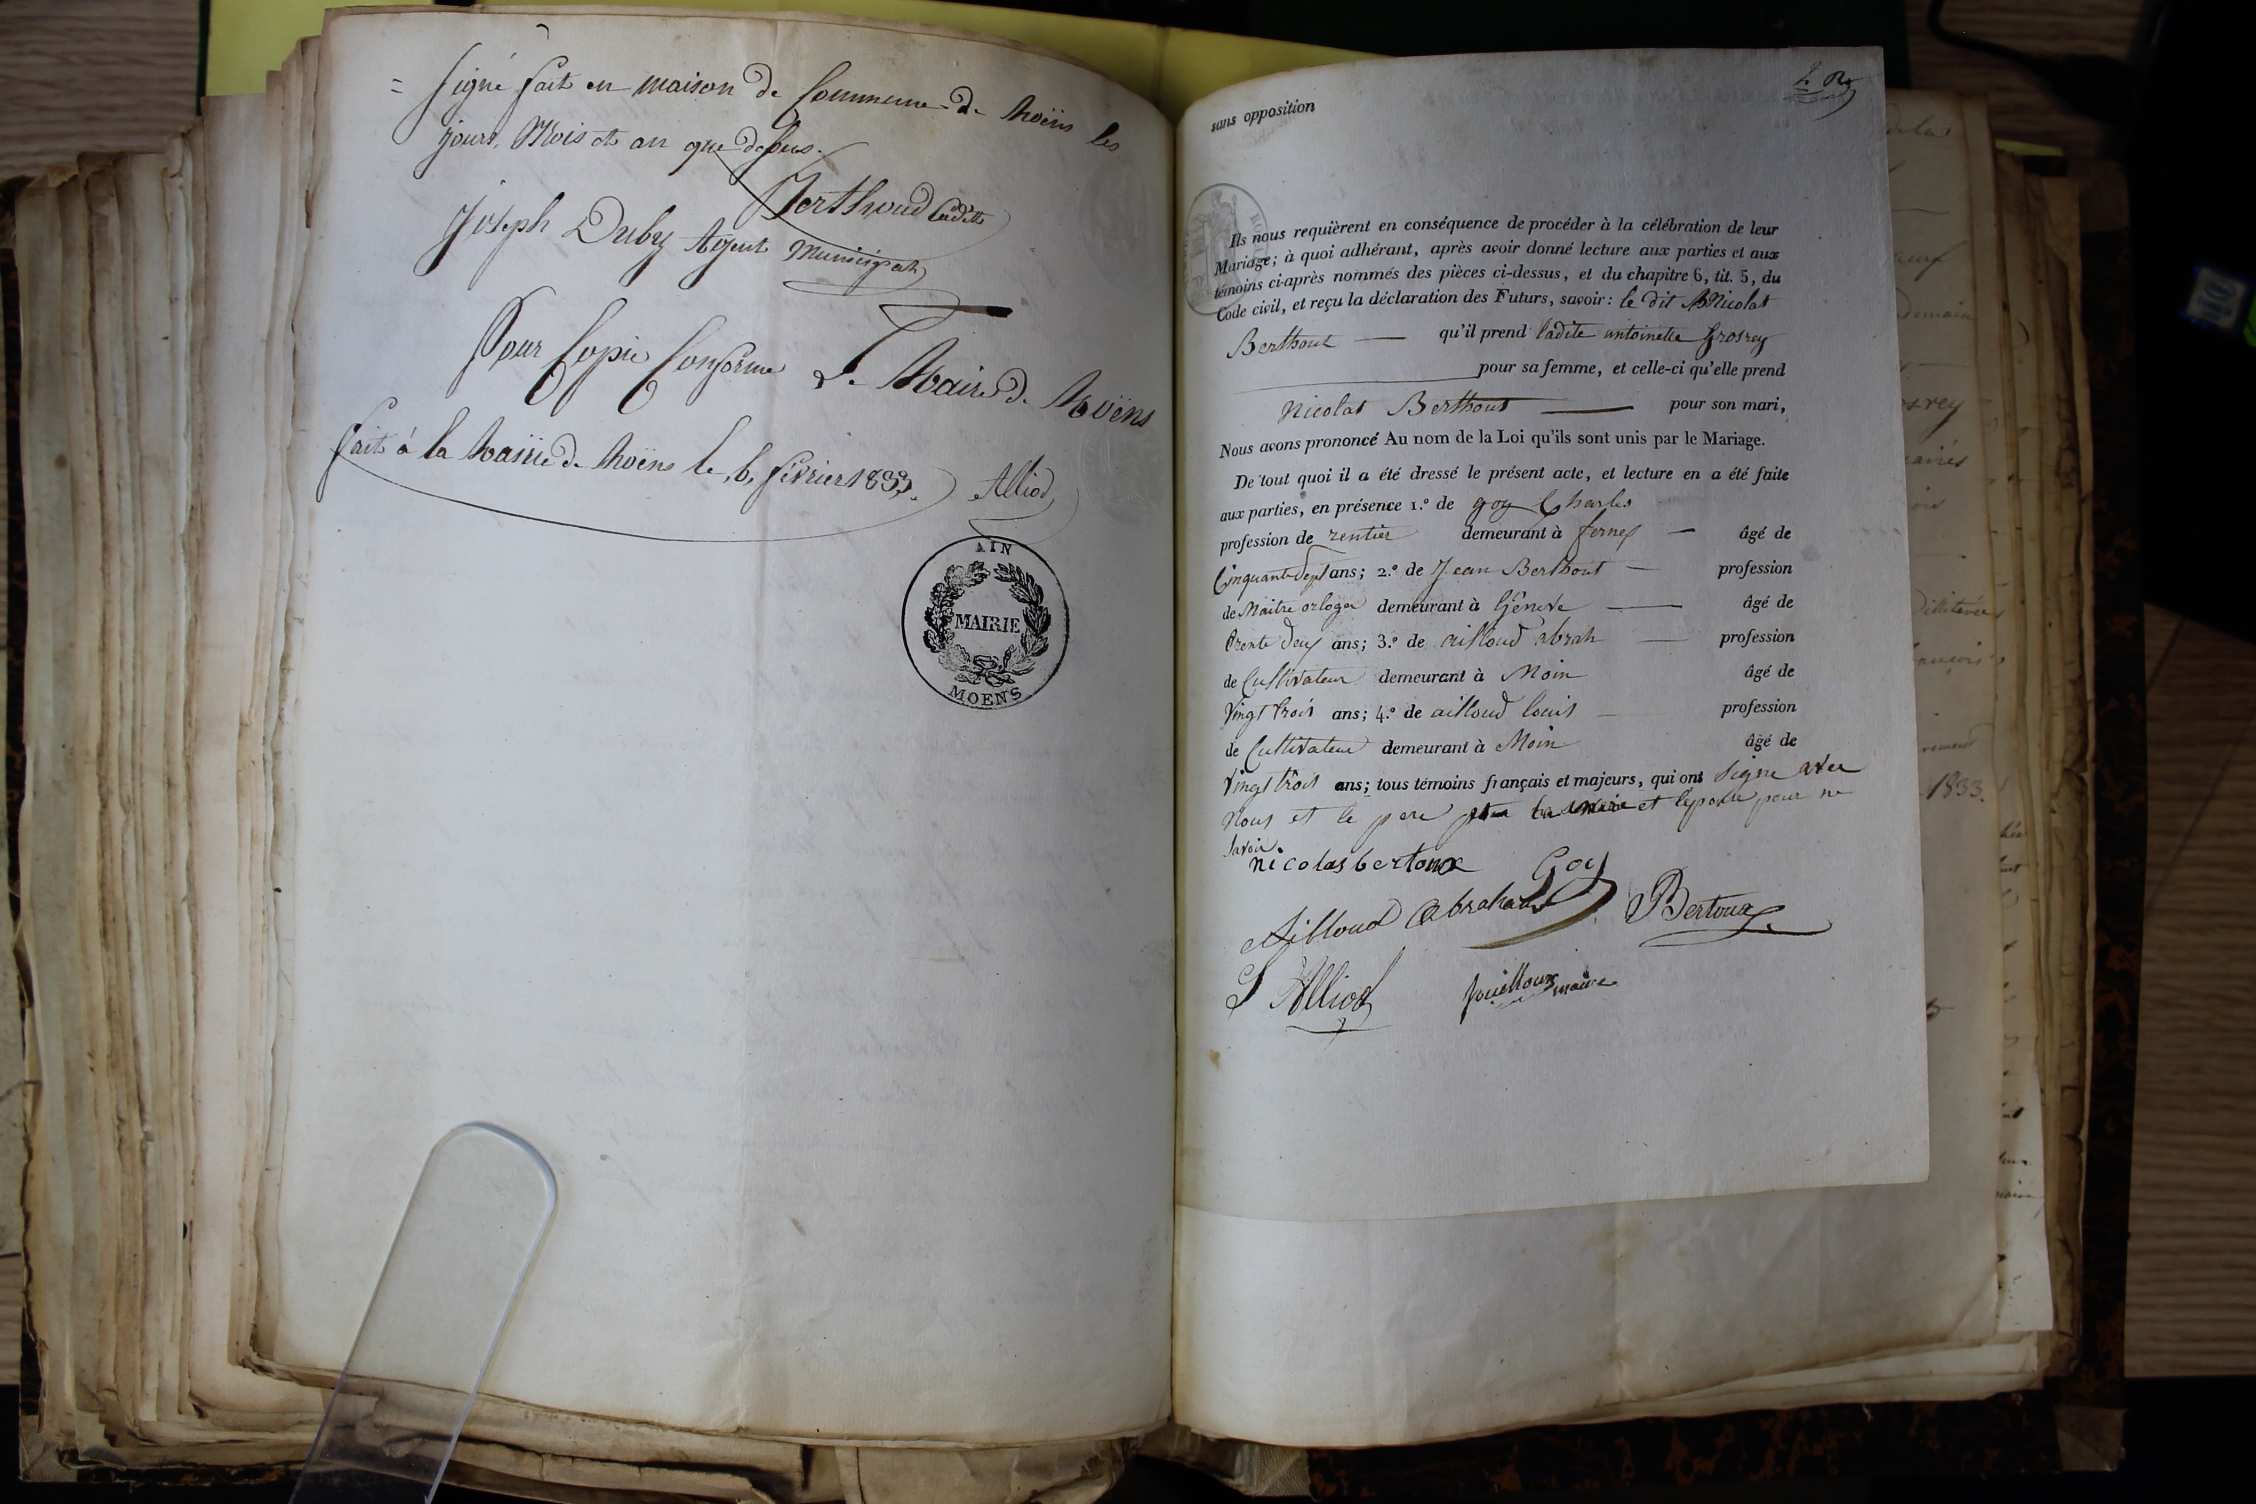 = signé fait en maison de Commune de Moëns les
jours, Mois et an que dessus.
Berthoud Cadette
Joseph Duby Agent Municipal
Pour Copie Conforme Le Maire de Moëns
fait à la Mairie de Moëns le 6 février 1833. Alliod
AIN
MAIRIE
MOENS
sans opposition
Ils nous requièrent en conséquence de procéder à la célébration de leur
Mariage; à quoi adhérant, après avoir donné lecture aux parties et aux
témoins ci-après nommés des pièces ci-dessus, et du chapitre 6, tit. 5, du
Code civil, et reçu la déclaration des Futurs, savoir: le dit Nicolas
Berthout — qu'il prend ladite antoinette grosrey
pour sa femme, et celle-ci qu'elle prend
Nicolas Berthout — pour son mari,
Nous avons prononcé Au nom de la Loi qu'ils sont unis par le Mariage.
De tout quoi il a été dressé le présent acte, et lecture en a été faite
aux parties, en présence 1.º de goy Charles
profession de rentier demeurant à fernex — âgé de
Cinquante Sept ans; 2.º de Jean Berthout — profession
de Maitre orloger demeurant à Génève — âgé de
trente deux ans; 3.º de ailloud abrah — profession
de Cultivateur demeurant à Moin âgé de
Vingt trois ans; 4.º de ailloud louis — profession
de Cultivateur demeurant à Moin âgé de
Vingt trois ans; tous témoins français et majeurs, qui ont signe avec
Nous et le pere et lepouse pour ne
savoir
nicolas bertoux Goy
Ailloud Abraham Bertoux
L Alliod fouilloux maire
osrey
1833.